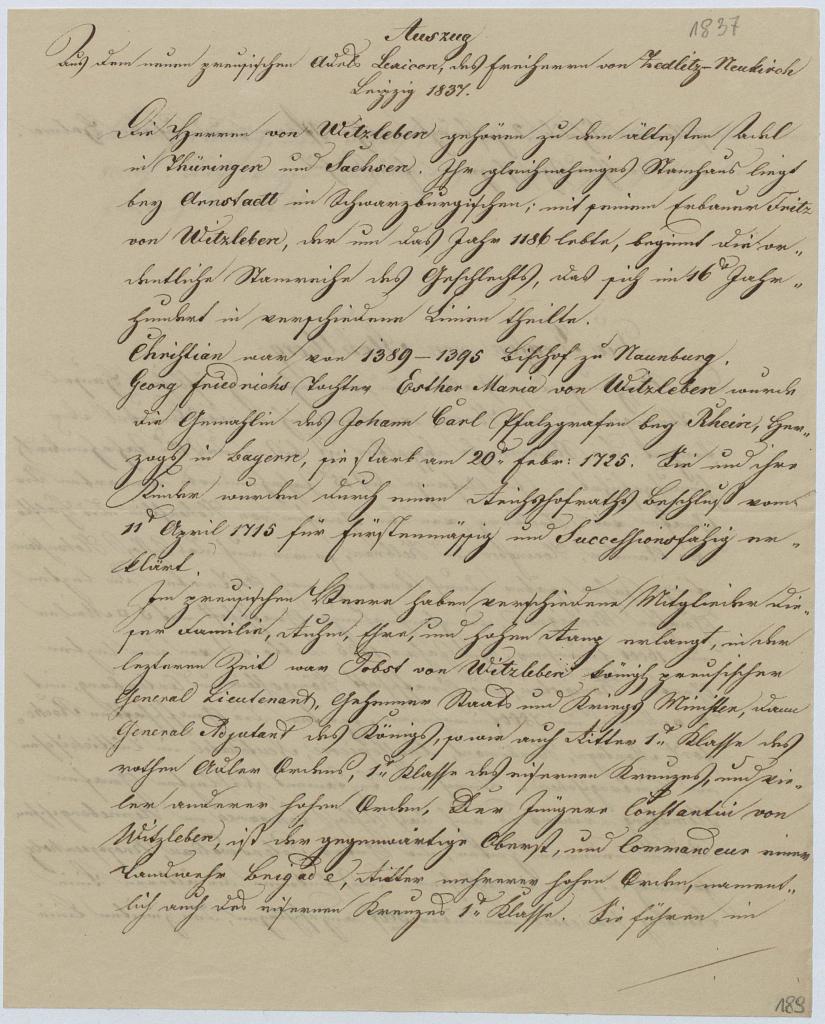 1837
Auszug
Aus dem neuen preusischen Adels Lexicon, des Freiherrn von Zedlitz-Neukirch
Leipzig 1837.
Die Herren von Witzleben gehören zu dem ältesten Adel
in Thüringen und Sachsen. Ihr gleichnahmiges Stamhaus liegt
bey Arnstadt im Schwarzburgischen; mit seinem Erbauer Fritz
von Witzleben, der um das Jahr 1186 lebte, beginnt die or-
dentliche Stamreihe des Geschlechts, das sich im 16ᵗ Jahr-
hundert in verschiedene Linien theilte.
Christian war von 1389-1395 Bischof zu Naumburg.
Georg Friedrichs Tochter Esther Maria von Witzleben wurde
die Gemahlin des Johann Carl Pfalzgrafen bey Rhein, Her-
zogs in Bayern, sie starb am 20ᵗ Febr: 1725. Sie und ihre
Kinder wurden durch einen Reichshofraths Beschluß vom
11ᵗ April 1715 für fürstenmässig und Successionsfähig er-
klärt.
Im preusischen Heere haben verschiedene Mitglieder die-
ser Familie, Ruhm, Ehre, und hohen Rang erlangt, in der
lezteren Zeit war Jobst von Witzleben königl preusischer
General Lieutenant, Geheimer Staats und Kriegs Minister, dann
General Adjutant des Königs, so wie auch Ritter 1ᵗ Klasse des
rothen Adler Ordens, 1ᵗ Klasse des eisernen Kreuzes, und vie-
ler anderer hohen Orden. Der Jüngere Constantin von
Witzleben, ist der gegenwärtige Oberst, und Commandeur einer
Landwehr Brigade, Ritter mehrerer hohen Orden, nament-
lich auch des eisernen Kreuzes 1ᵗ Klasse. Sie führen im
189